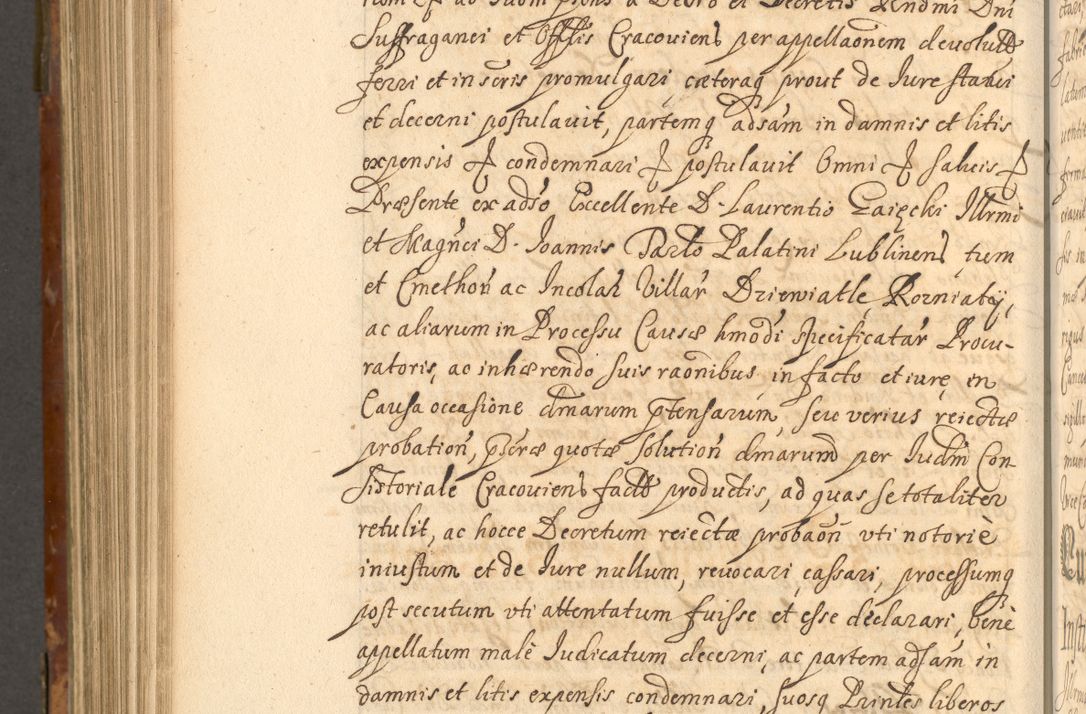 Suffraganei et Offlis Cracovien̄ per appellaonem devolutt
ferri et in scris promulgari cæteraq prout de Jure stami
et decerni postulavit, partemq adsam in damnis et litis
expensis condemnari postulavit Omni Salvis
Præsente ex adso Excellente D. Laurentio Zaięcki Illrmi
et Magnci D. Joannis Tarło Palatini Lublinen̄, tum
et Cmethon̄ ac Incolar̄ Villar̄ Drzewiatle, Rozniaty,
ac aliarum in Processu Causæ hmodi specificatar̄ Procu-
ratoris, ac inhærendo suis raonibus in facto et iure, in
Causa occasione dmarum ptensarum, seu verius reiectæ
probation̄, pseræ quotæ solution̄ dmarum per Judm Con-
sistoriale Cracovien̄ factt productis, ad quas se totaliter
retulit, ac hocce Decretum reiectæ probaon̄ uti notoriè
iniustum et de Jure nullum, revocari, cassari, processumq
post secutum uti attentatum fuisse et esse declarari, benè
appellatum malè Judicatum decerni, ac partem adsam in
damnis et litis expensis condemnari, suosq Prinles liberos